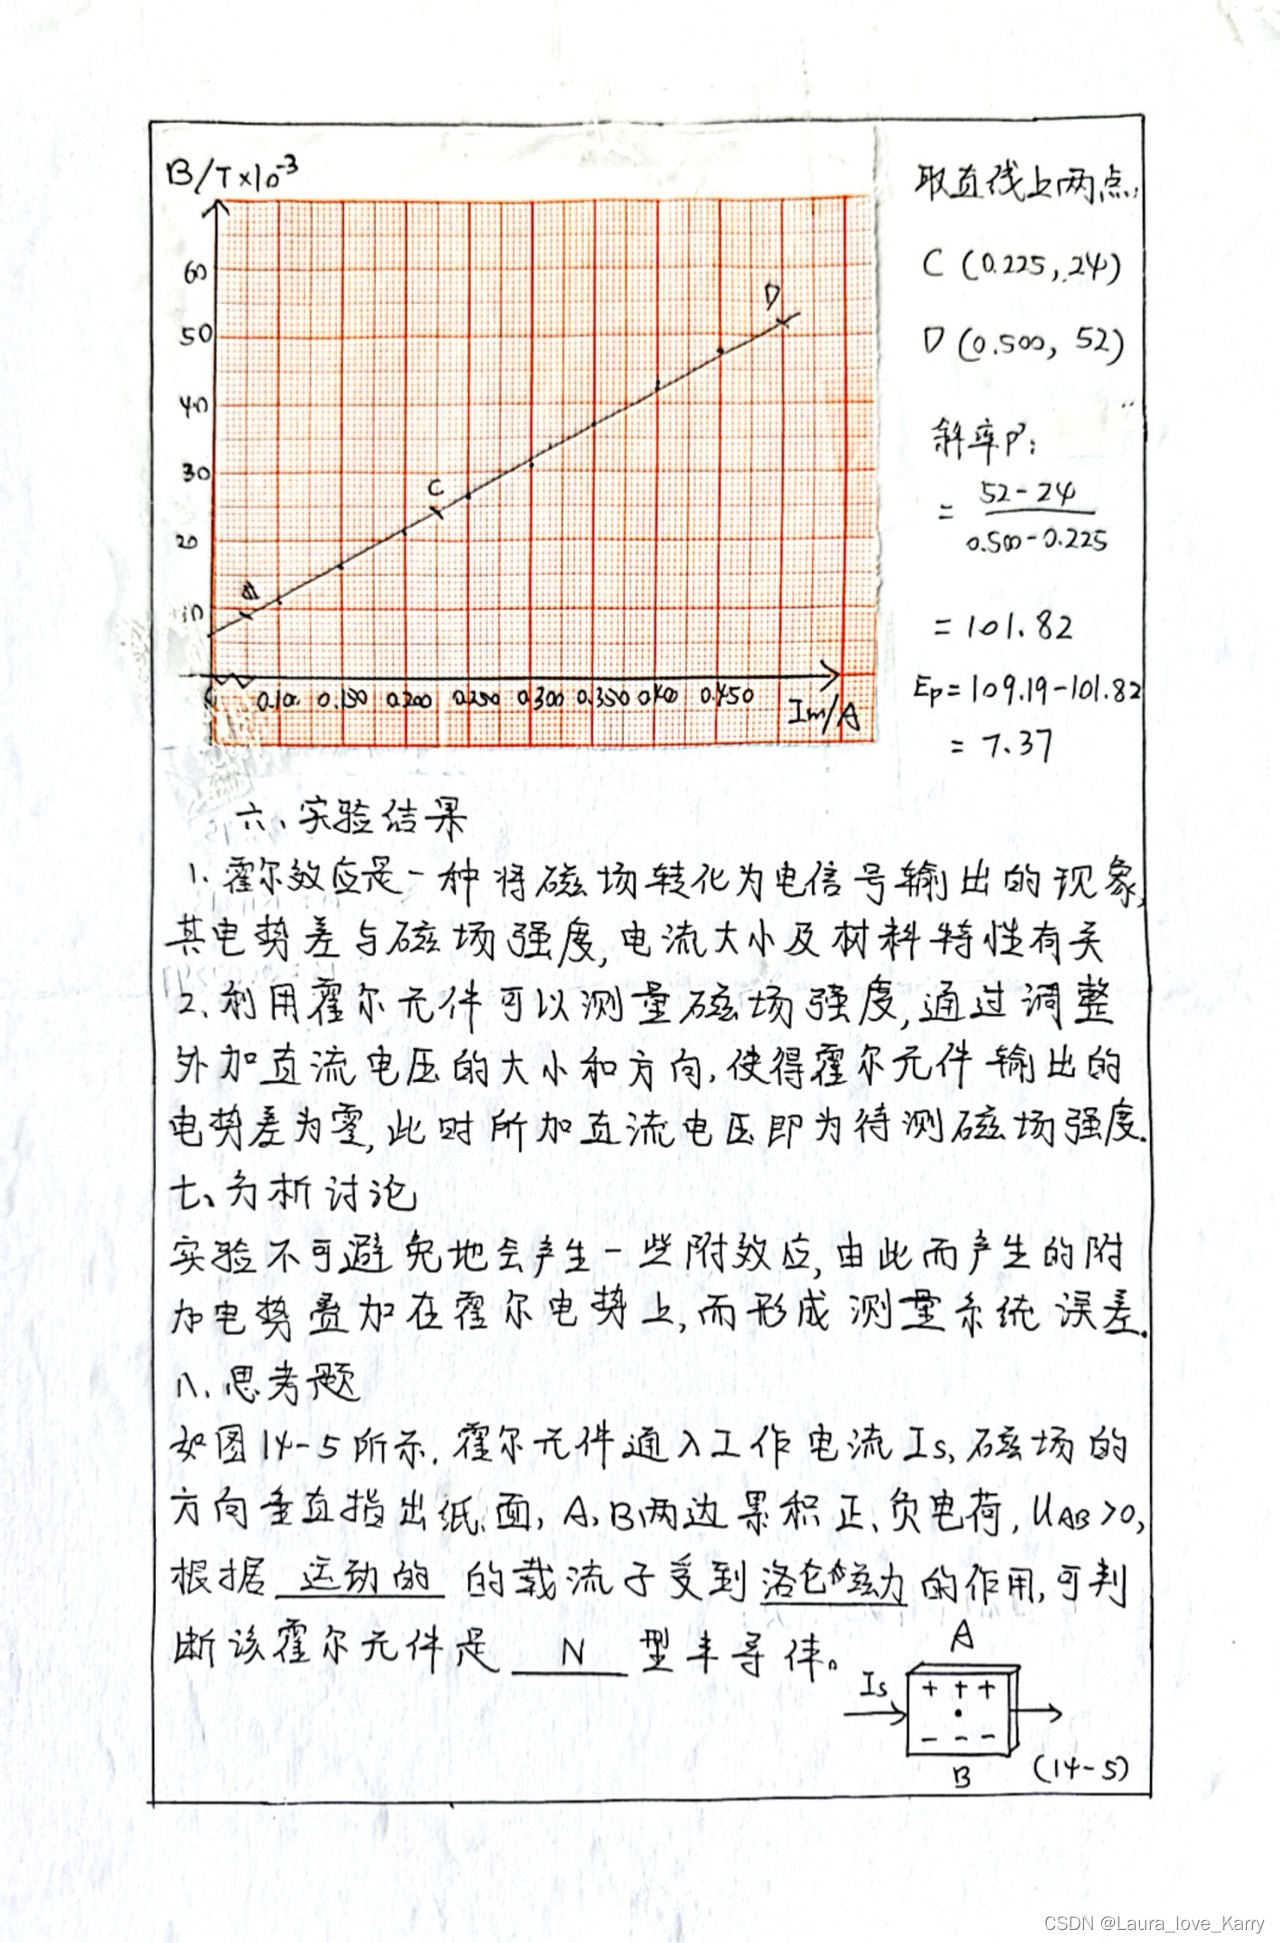 B/T×10⁻³
60
50
40
30
20
10
C
D
0.100 0.150 0.200 0.250 0.300 0.350 0.400 0.450
Im/A
取直线上两点:
C (0.225, 24)
D (0.500, 52)
斜率P:
= 52-24 / 0.500-0.225
= 101.82
Ep = 109.19-101.82
= 7.37
六、实验结果
1. 霍尔效应是一种将磁场转化为电信号输出的现象,
其电势差与磁场强度,电流大小及材料特性有关
2. 利用霍尔元件可以测量磁场强度,通过调整
外加直流电压的大小和方向,使得霍尔元件输出的
电势差为零,此时所加直流电压即为待测磁场强度.
七、分析讨论
实验不可避免地会产生一些附效应,由此而产生的附
加电势叠加在霍尔电势上,而形成测量系统误差.
八、思考题
如图14-5所示.霍尔元件通入工作电流Is,磁场的
方向垂直指出纸面,A、B两边累积正、负电荷,UAB>0,
根据 运动的 的载流子受到洛仑磁力的作用,可判
断该霍尔元件是 N 型半导体。
A
Is
+ + +
- - -
B
(14-5)
CSDN @Laura_love_Karry